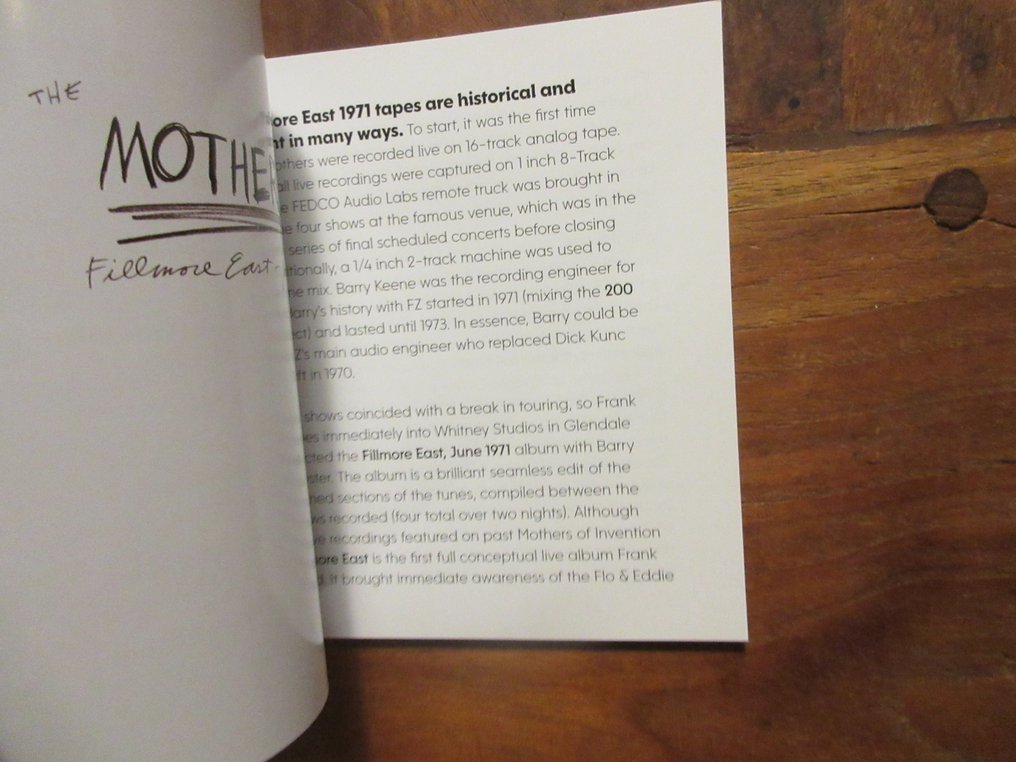 THE
MOTHE
Fillmore East
ore East 1971 tapes are historical and
nt in many ways. To start, it was the first time
others were recorded live on 16-track analog tape.
all live recordings were captured on 1 inch 8-Track
e FEDCO Audio Labs remote truck was brought in
e four shows at the famous venue, which was in the
series of final scheduled concerts before closing
tionally, a 1/4 inch 2-track machine was used to
ne mix. Barry Keene was the recording engineer for
arry's history with FZ started in 1971 (mixing the 200
ct) and lasted until 1973. In essence, Barry could be
Z's main audio engineer who replaced Dick Kunc
ft in 1970.
shows coincided with a break in touring, so Frank
es immediately into Whitney Studios in Glendale
cted the Fillmore East, June 1971 album with Barry
ster. The album is a brilliant seamless edit of the
ned sections of the tunes, compiled between the
ws recorded (four total over two nights). Although
ve recordings featured on past Mothers of Invention
ore East is the first full conceptual live album Frank
d. It brought immediate awareness of the Flo & Eddie